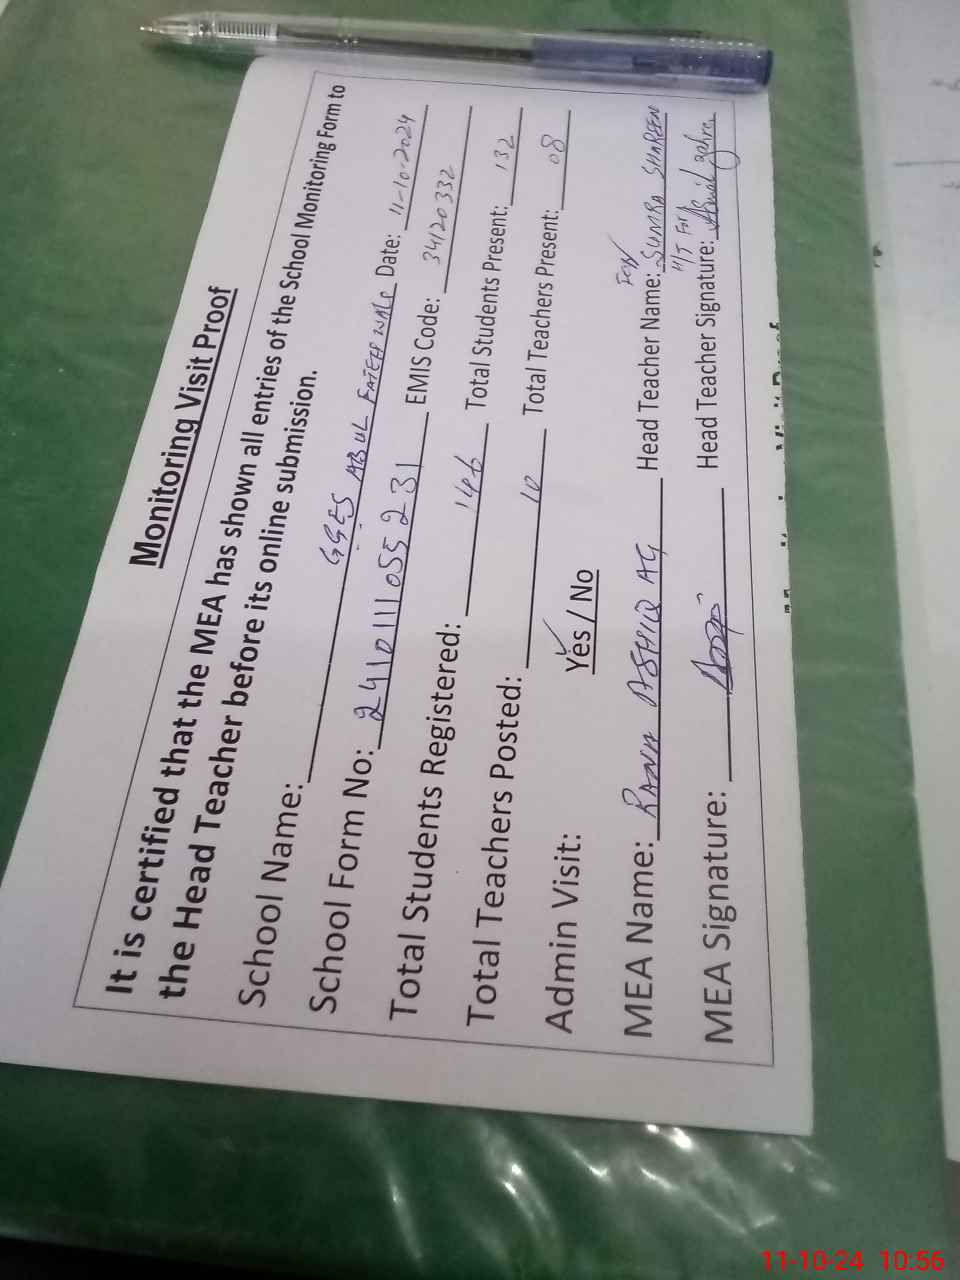 Monitoring Visit Proof
It is certified that the MEA has shown all entries of the School Monitoring Form to
the Head Teacher before its online submission.
School Name: GGES ABUL FATEH WALE Date: 11-10-2024
School Form No: 2410111055231 EMIS Code: 34120332
Total Students Registered: 146 Total Students Present: 132
Total Teachers Posted: 10 Total Teachers Present: 08
Admin Visit: Yes / No
MEA Name: RANA ASHIQ AG Head Teacher Name: SUMRA SHAREEN
H/T For
MEA Signature: Head Teacher Signature:
11-10-24 10:56